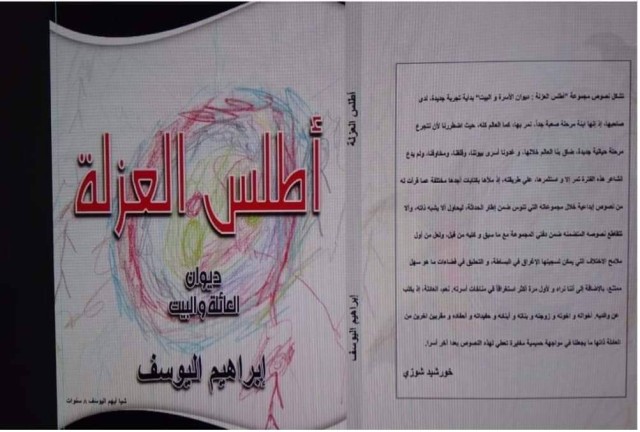 أطلس العزلة
ديوان
العائلة والبيت
إبراهيم اليوسف
شيا ايهم اليوسف ٨ سنوات
أطلس العزلة
إبراهيم اليوسف
تشكل نصوص مجموعة "أطلس العزلة : ديوان الأسرة و البيت" بداية تجربة جديدة، لدى
صاحبها، إذ إنها ابنة مرحلة صعبة جداً، تمر بها، كما العالم كله، حيث اضطررنا لأن نتجرع
مرحلة حياتية جديدة، ضاق بنا العالم خلالها، و غدونا أسرى بيوتنا، وقلقنا، ومخاوفنا، ولم يدع
الشاعر هذه الفترة تمر إلا و استثمرها، على طريقته، إذ ملأها بكتابات أجدها مختلفة عما قرأت له
من نصوص إبداعية خلال مجموعاته التي تنوس ضمن إطار الحداثة، ليحاول ألا يشبه ذاته، وألا
تتقاطع نصوصه المتضمنة ضمن دفتي المجموعة مع ما سبق و كتبه من قبل، ولعل من أول
ملامح الاختلاف التي يمكن تسجيلها الإغراق في البساطة، و التحليق في فضاءات ما هو سهل
ممتنع، بالإضافة إلى أننا نراه و لأول مرة أكثر استغراقاً في متاهات أسرته، نحب العائلة، إذ يكتب
عن والديه، أخواته و أخوته و زوجته و بناته و أبنائه و حفيداته و أحفاده، و مقربين آخرين من
العائلة ذاتها ما يجعلنا في مواجهة حميمية مغايرة تعطي لهذه النصوص بعداً آخر آسراً.
خورشيد شوزي